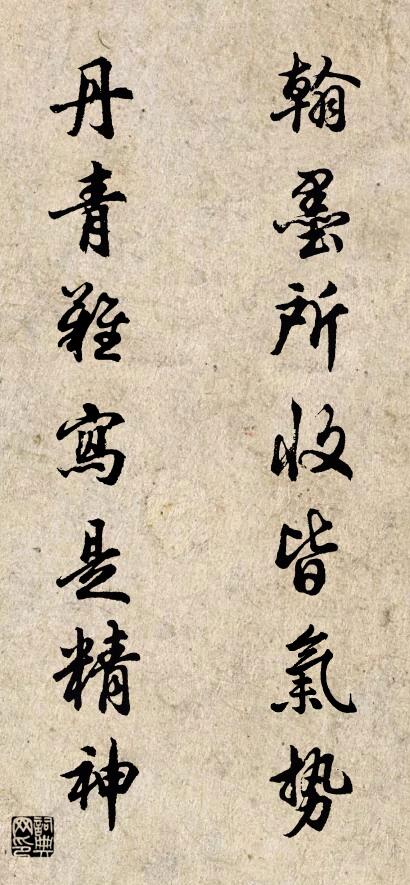 翰墨所收皆氣勢
丹青難寫是精神
詞典网印